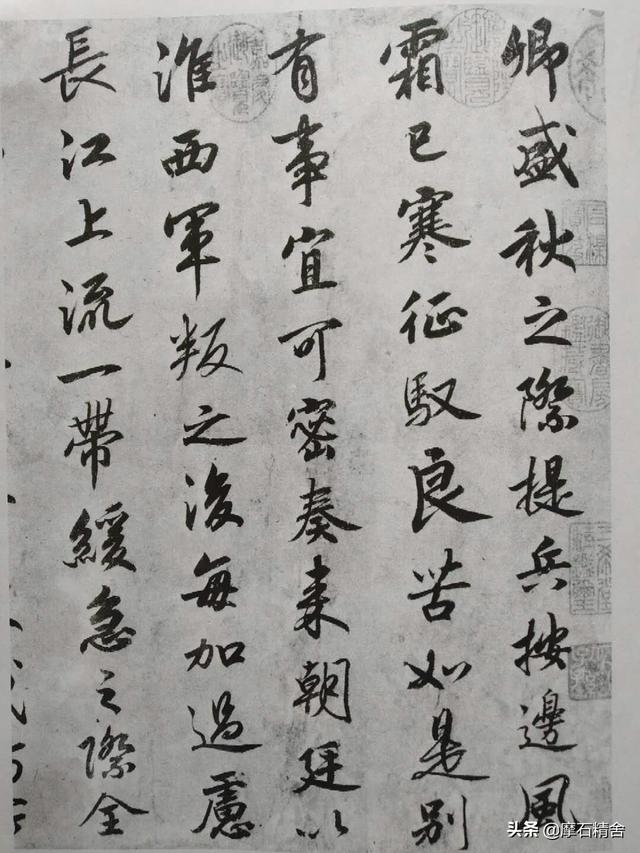 卿盛秋之際提兵按邊風
霜已寒征馭良苦如是別
有事宜可密奏来朝廷以
淮西軍叛之後每加過慮
長江上流一帶緩急之際全
头条 @摩石精舍